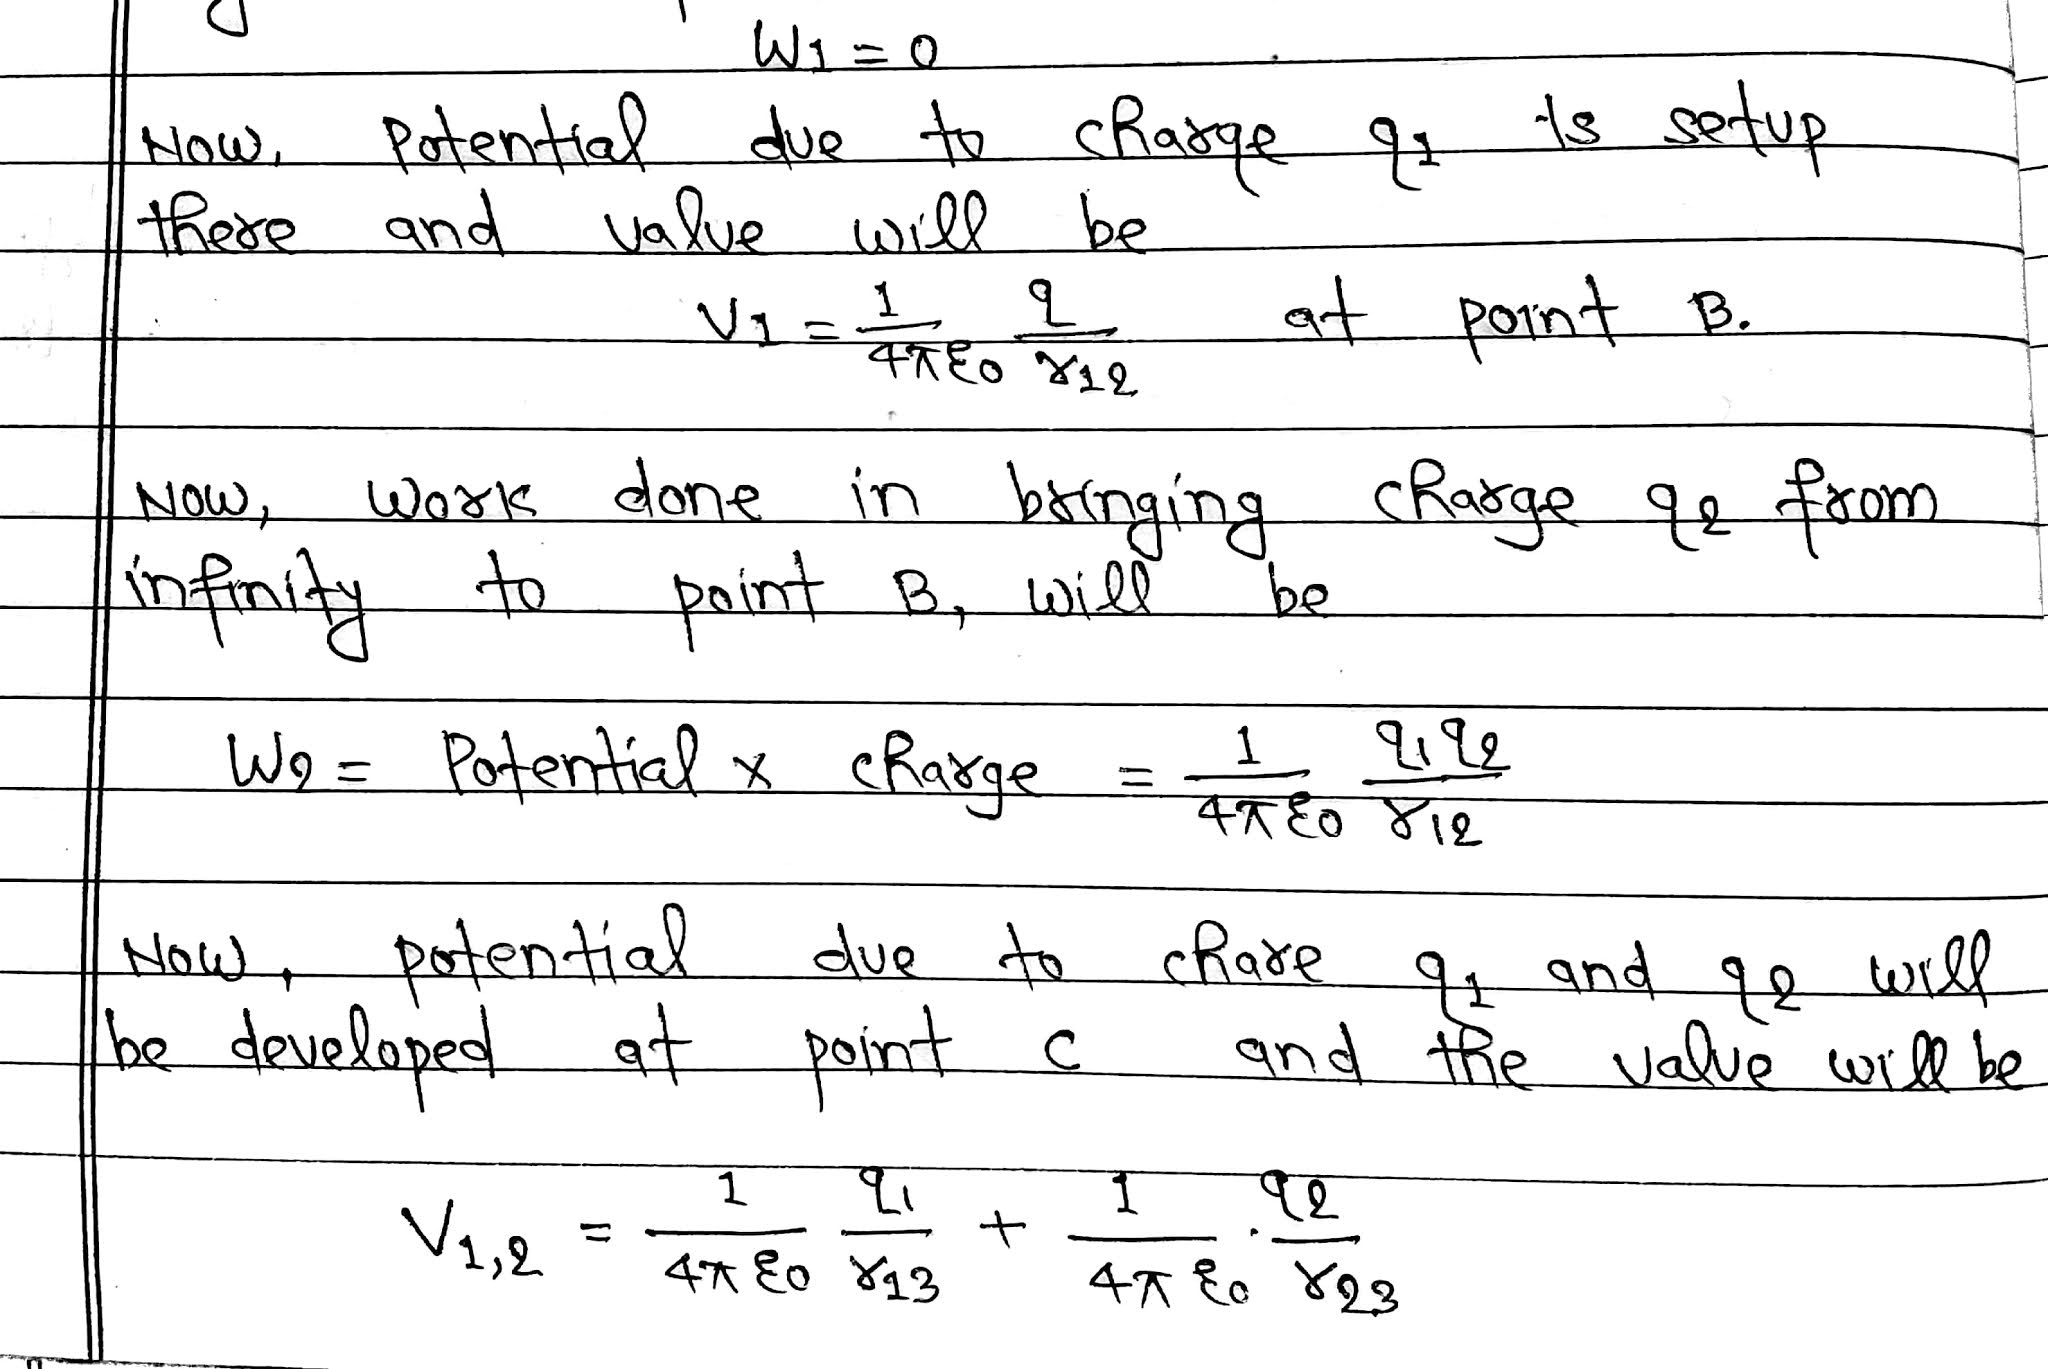 W1 = 0
Now, Potential due to charge q1 is setup
there and value will be
V1 = 1/4πε0 q/r12 at point B.
Now, work done in bringing charge q2 from
infinity to point B, will be
W2 = Potential x charge = 1/4πε0 q1q2/r12
Now, potential due to chare q1 and q2 will
be developed at point C and the value will be
V1,2 = 1/4πε0 q1/r13 + 1/4πε0 . q2/r23